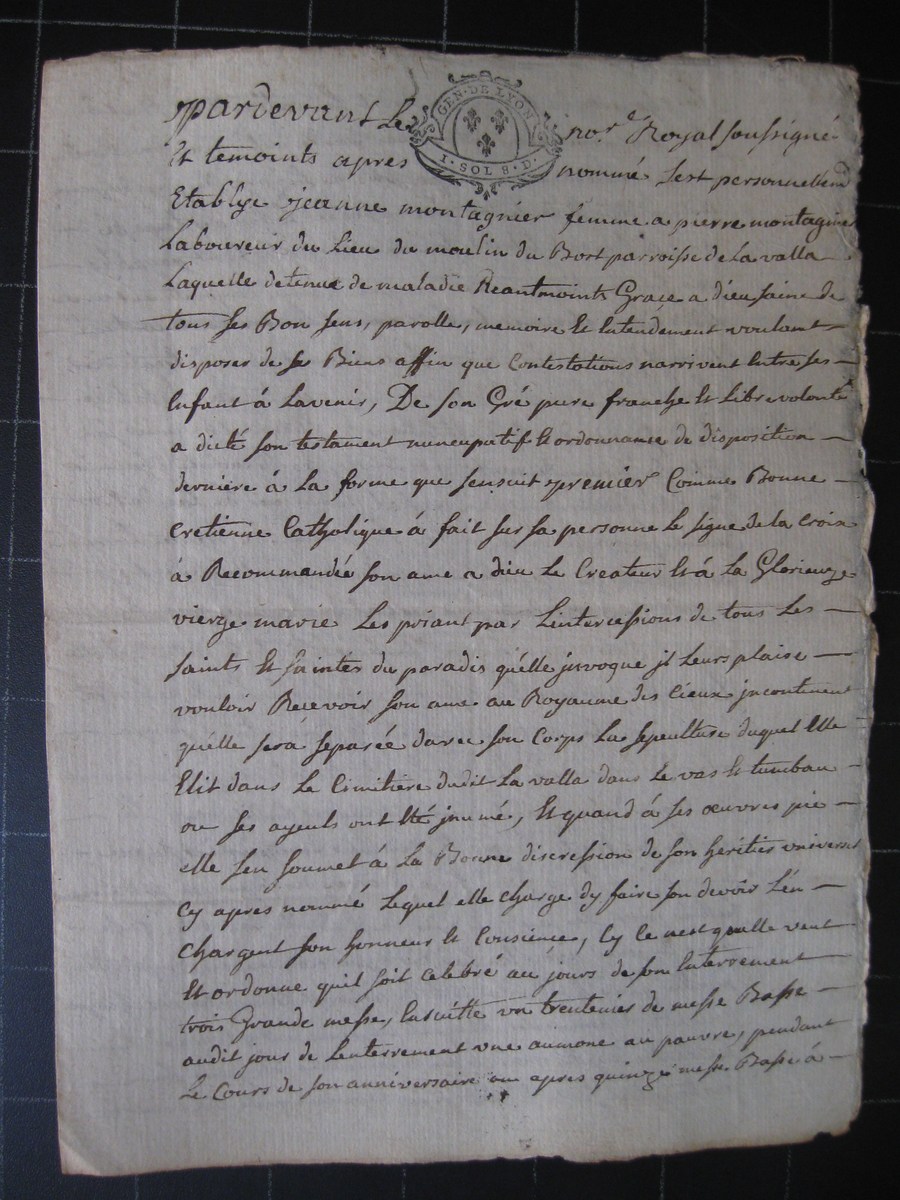 GEN · DE LYON
1 · SOL 8 · D ·
Pardevant Le nore Royal soussigné
Et temoints apres nommé sest personnellemt
Etablye jeanne montagnier femme a pierre montagnier
Laboureur du Lieu du moulin du Bost parroisse de La valla
Laquelle detenue de maladie Neantmoints Grace a dieu saine de
tous ses Bon sens, parolle, memoire Et Entendement voulant
disposer de se Biens affin que Contestations narrivent Entre ses
Enfant á Lavenir, De son Gré pure franche Et Libre volonté
a dicté son testament nuncupatif Et ordonnanse de disposition
derniere á La forme que sensuit premier Comme Bonne
Cretienne Catholique á fait sur sa personne Le signe de La Croix
á Recommandée son ame a dieu Le Createur Et á La Glorieuze
vierge marie Les priant par Lintercessions de tous Les
saints Et saintes du paradis quélle jnvoque jl Leurs plaise
vouloir Recevoir son ame au Royaume des Cieux jncontinent
quélle sera separée davec son Corps La sepulture duquel Elle
Elit dans Le Cimitiere dudit La valla dans Le vas Et tumbau
ou ses ayeuls ont Eté jnumé, Et quand á ses œuvres pie
elle sen soumet á La Bonne discression de son heritier universel
Cy apres nommé Lequel elle charge dy faire son devoir Lén
chargent son honneur Et Consience, Cy Ce nest quelle veut
Et ordonne quil soit Celebré au jours de son Enterrement
trois Grande messe, Ensuitte vn trentenier de messe Basse
audit jour de Lenterrement vne aumone au pauvre, pendant
Le Cours de son anniversaire ou apres quinze messe Basse á